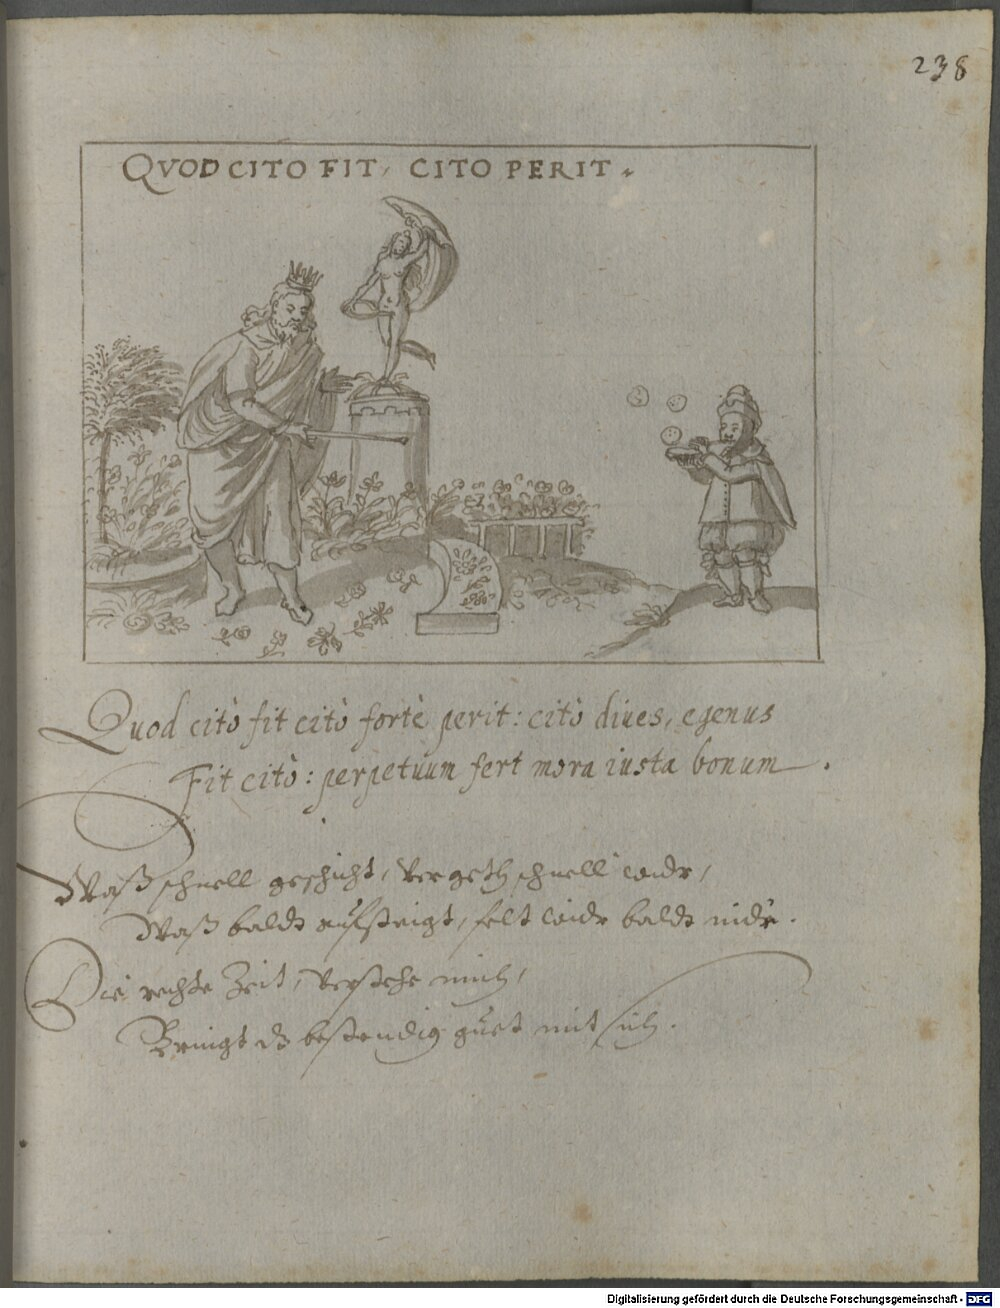 238
QVOD CITO FIT, CITO PERIT.
Quod citò fit citò fortè perit: citò diues, egenus
Fit citò: perpetuum fert mora iusta bonum.
Waß schnell geschicht, vergeth schnell widr,
Waß baldt aufsteigt, felt widr baldt nidr.
Die rechte Zeit, verstehe mich,
Bringt dz bestendig guet mit sich.
Digitalisierung gefördert durch die Deutsche Forschungsgemeinschaft - DFG